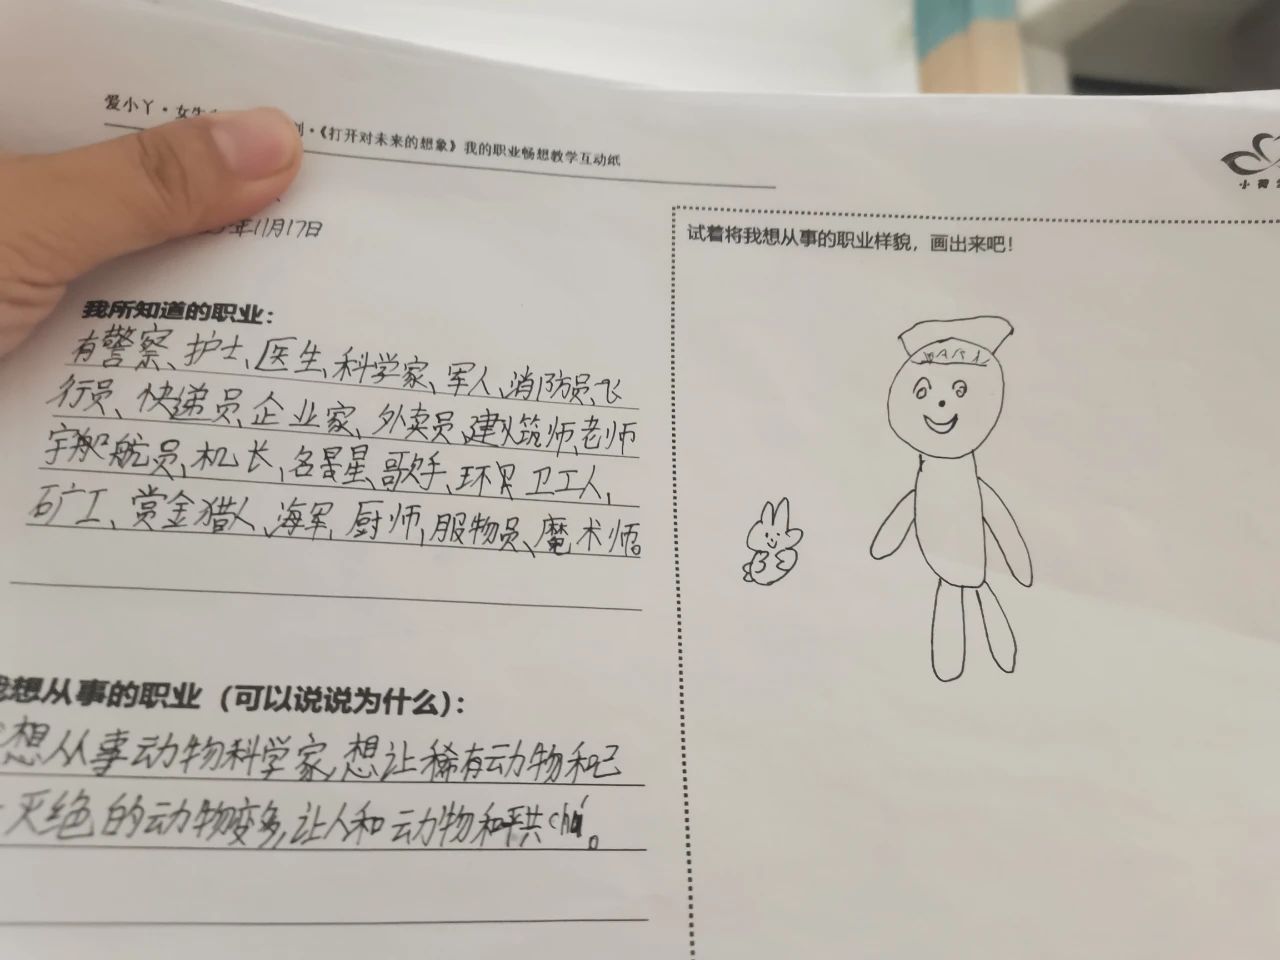 爱小丫·女生
·《打开对未来的想象》我的职业畅想教学互动纸
小荷
年11月17日
试着将我想从事的职业样貌，画出来吧！
我所知道的职业：
有警察、护士、医生、科学家、军人、消防员、飞
行员、快递员、企业家、外卖员、建筑师、老师
宇船航员、机长、名星、歌手、环卫工人、
矿工、赏金猎人、海军、厨师、服物员、魔术师。
想从事的职业（可以说说为什么）：
想从事动物科学家，想让稀有动物和已
灭绝的动物变多，让人和动物和平共chǔ。